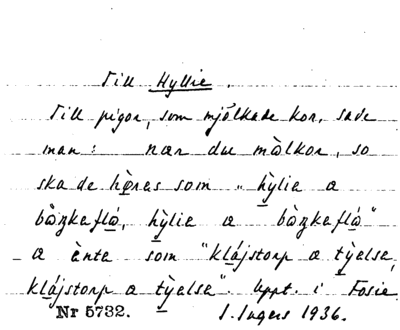 Till Hyllie.
Till pigor, som mjölkade kor, sade
man: nær du mòlkor, so
ska de høras som "hỳlia a
båŋkaflå, hỳlia a bàŋkaflå"
a ènte som "klájstorp a tỳelse,
klájstorp a tỳelse". Uppt. i Fosie
Nr 5732. I. Ingers 1936.